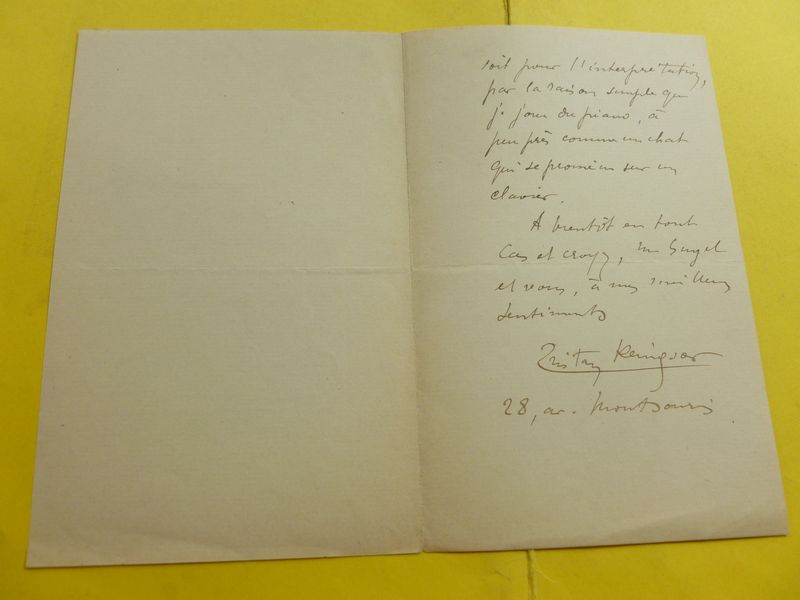 soit pour l'interprétation,
par la raison simple que
je joue du piano, à
peu près comme un chat
qui se promène sur un
clavier.
A bientôt en tout
cas et croyez,
et vous, à mes meilleurs
sentiments
Tristan Klingsor
28, av. Montsouris